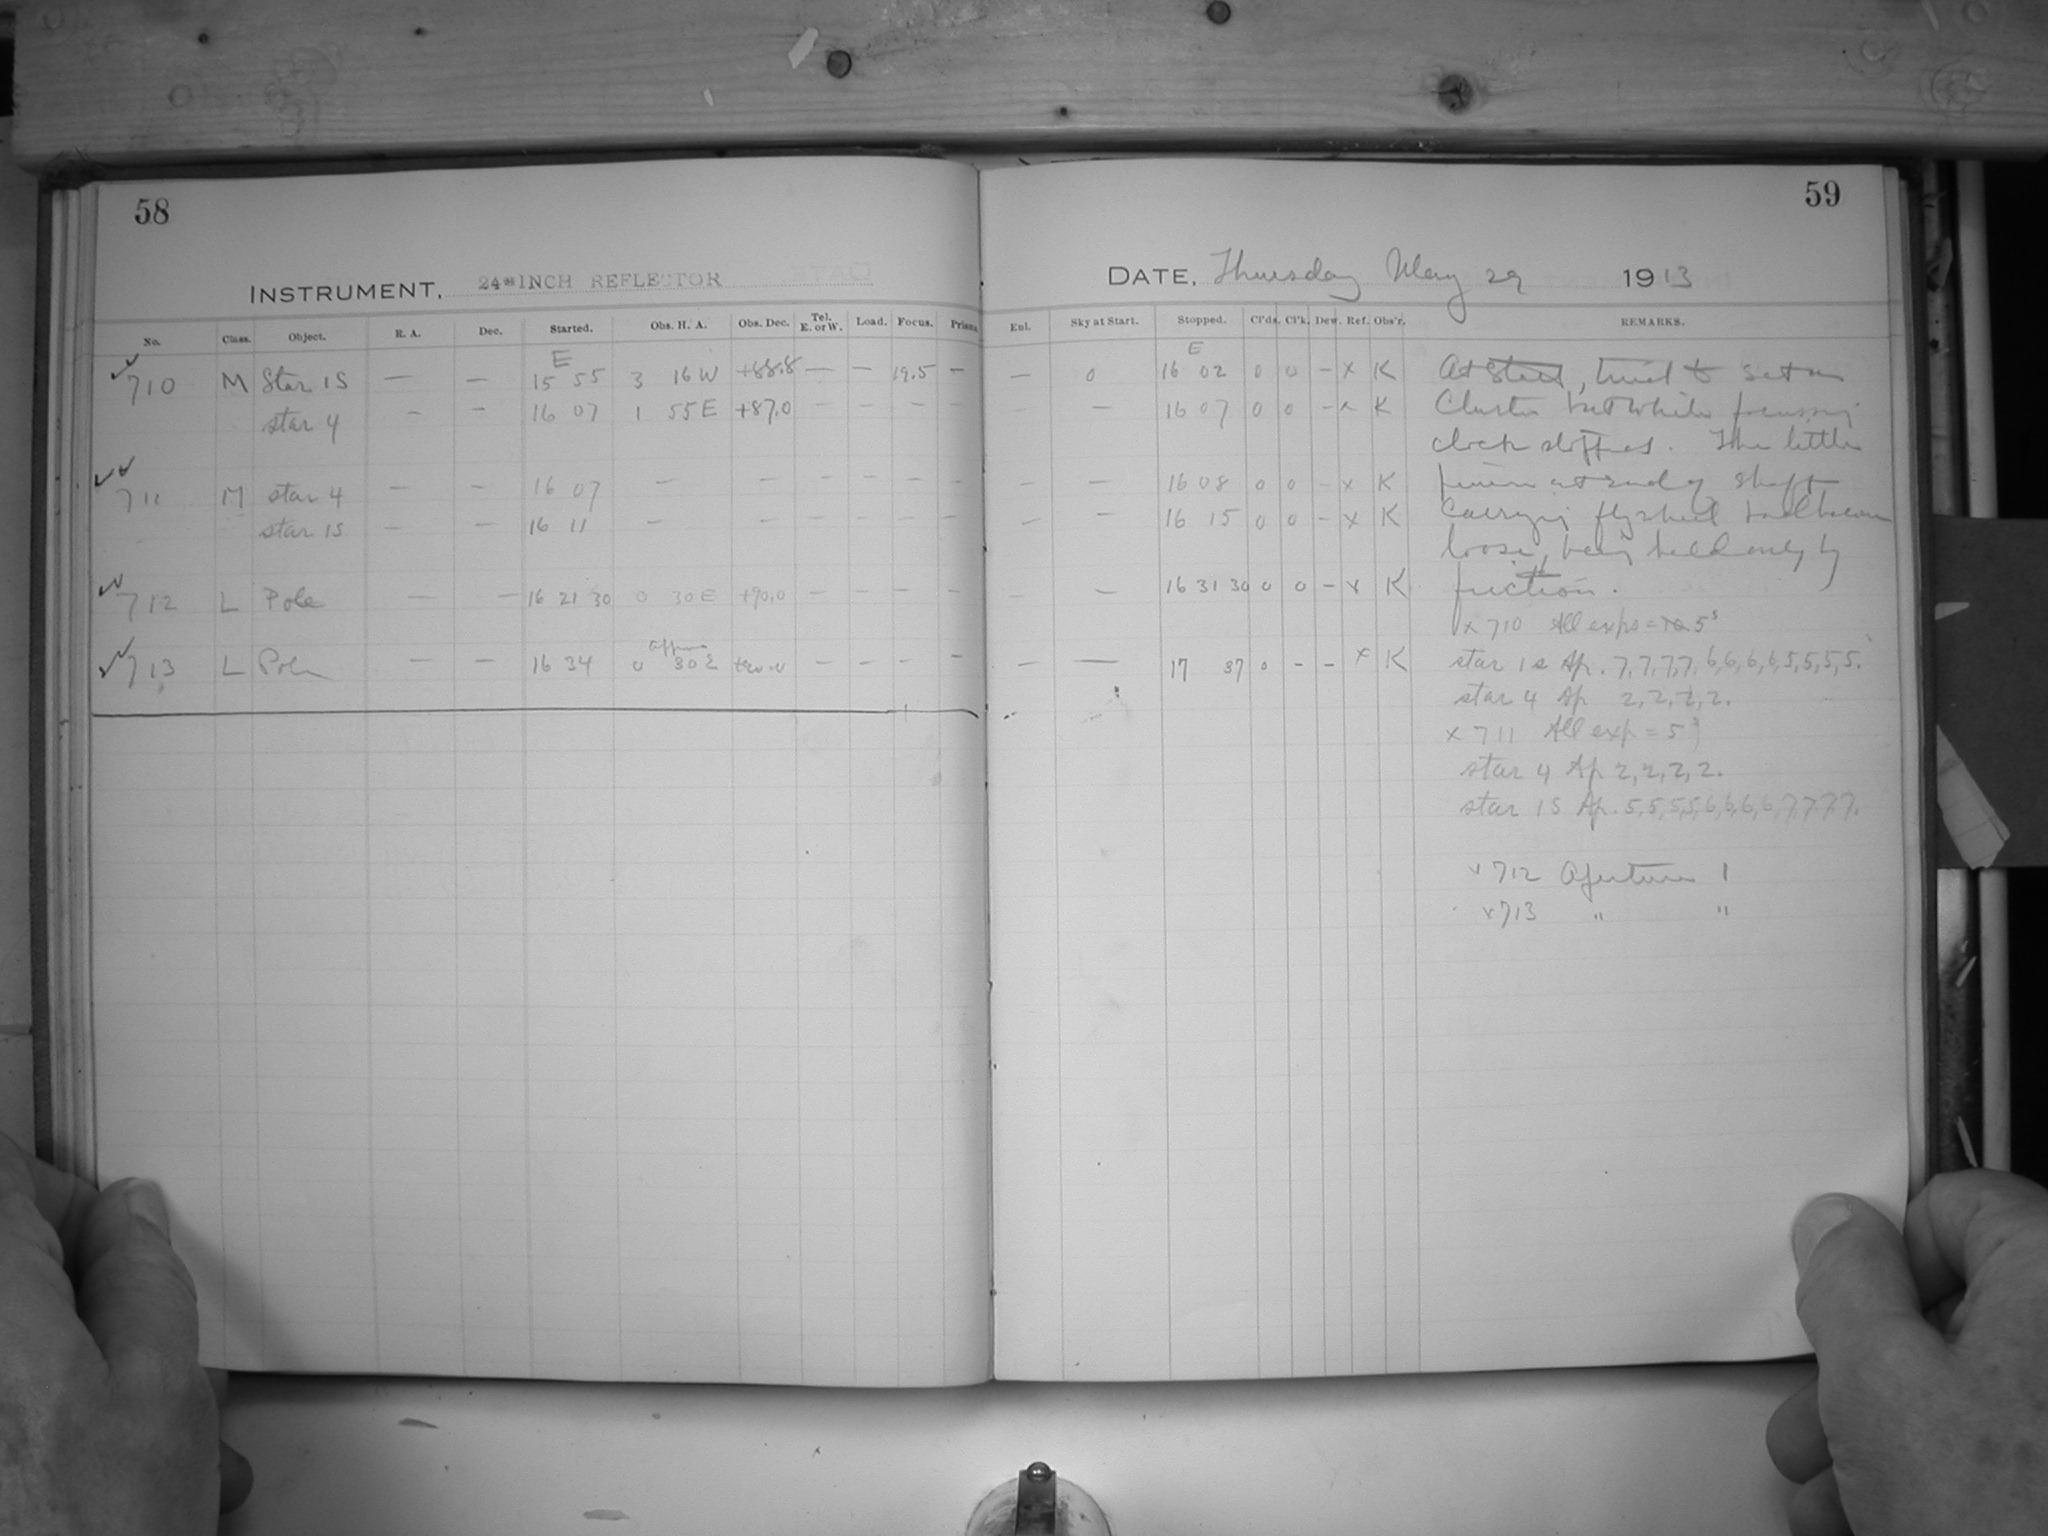 58
INSTRUMENT, 24-INCH REFLECTOR
No. Class. Object. R. A. Dec. Started. Obs. H. A. Obs. Dec. Tel. E. or W. Load. Focus. Prisms.
E
710 M Star 1S — — 15 55 3 16 W +88.8 — — 19.5 —
star 4 - - 16 07 1 55 E +87.0 — — — —
711 M star 4 — — 16 07 — — — — — —
star 1s — — 16 11 — — — — — —
712 L Pole — — 16 21 30 0 30 E +90.0 — — — —
approx
713 L Pole — — 16 34 0 30 E +90.0 — — — —
59
DATE, Thursday May 29 1913
Enl. Sky at Start. Stopped. Cl'ds. Cl'k. Dew. Ref. Obs'r. REMARKS.
E
— 0 16 02 0 0 - x K At Start, tried to set on
— — 16 07 0 0 - x K Cluster but while focussing
clock stopped. The little
— — 16 08 0 0 - x K pinion at end of shaft
— — 16 15 0 0 - x K carrying flywheel had become
loose, being held only by
— — 16 31 30 0 0 - x K friction.
x 710 All exps = 5s
— — 17 37 0 - - x K star 1s Ap. 7,7,7,7,6,6,6,6,5,5,5,5.
star 4 Ap 2,2,2,2.
x 711 All exp = 5s
star 4 Ap 2,2,2,2.
star 1S Ap. 5,5,5,5,6,6,6,6,7,7,7,7.
x 712 Aperture 1
x 713 " "